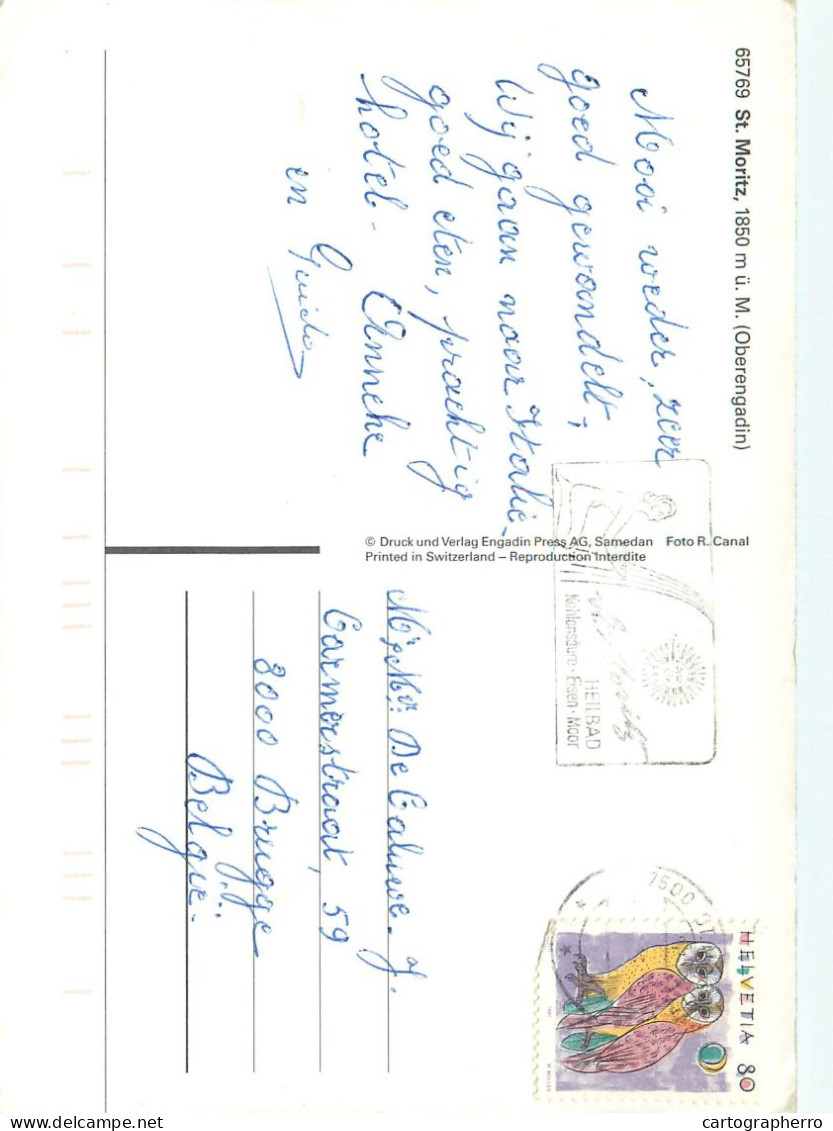 65769 St. Moritz, 1850 m ü. M. (Oberengadin)
Mooi weder, zeer
goed gewandelt,
Wij gaan naar Italie.
goed eten, prachtig
hotel. Anneke
en Guido
© Druck und Verlag Engadin Press AG, Samedan Foto R. Canal
Printed in Switzerland – Reproduction Interdite
St. Moritz
HEILBAD
Kohlensäure-Eisen-Moor
7500 ST
HELVETIA 80
1991
De Caluwe. J.
Carmerstraat, 59
8000 Brugge
België.
cartographerro